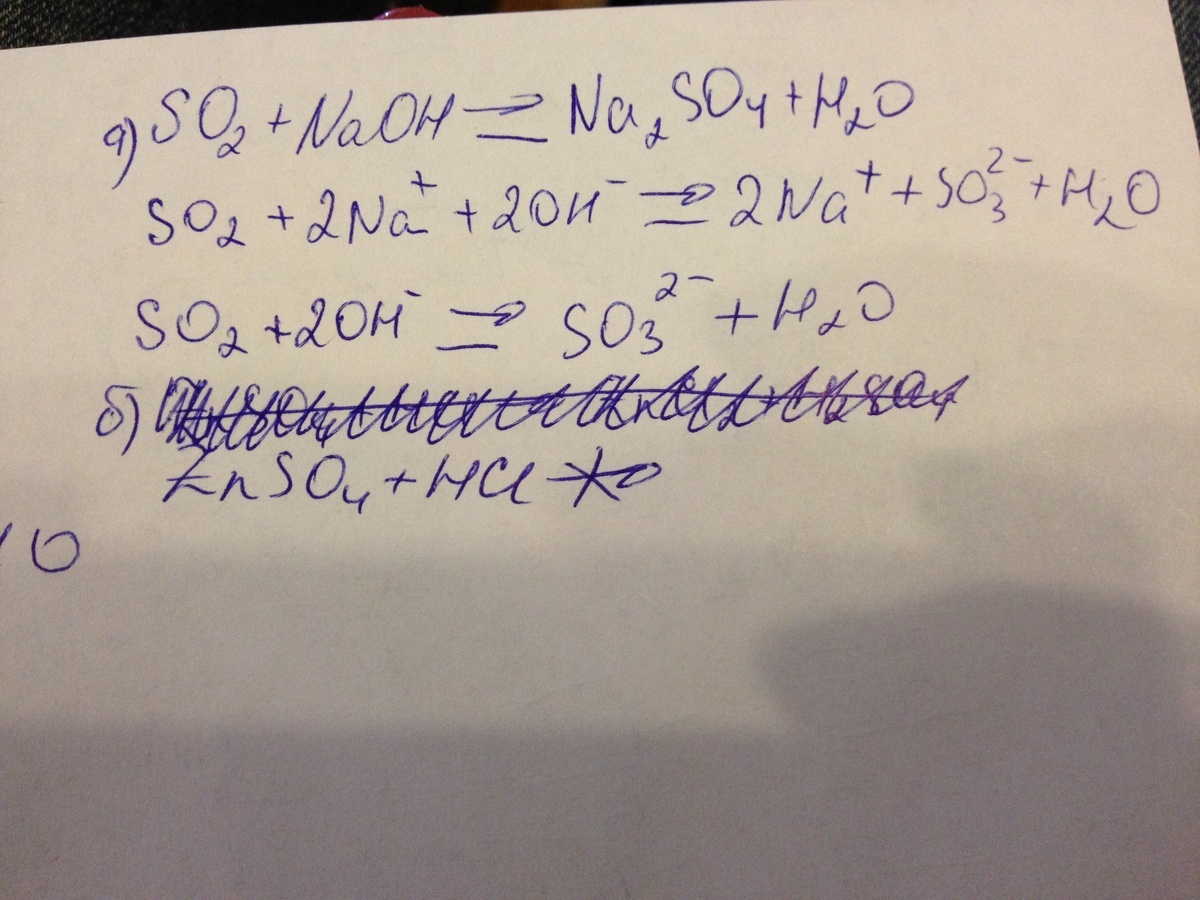 а) SO₂ + NaOH ⇌ Na₂SO₄ + H₂O
SO₂ + 2Na⁺ + 2OH⁻ ⇌ 2Na⁺ + SO₃²⁻ + H₂O
SO₂ + 2OH⁻ ⇌ SO₃²⁻ + H₂O
б)
ZnSO₄ + HCl ↛
O